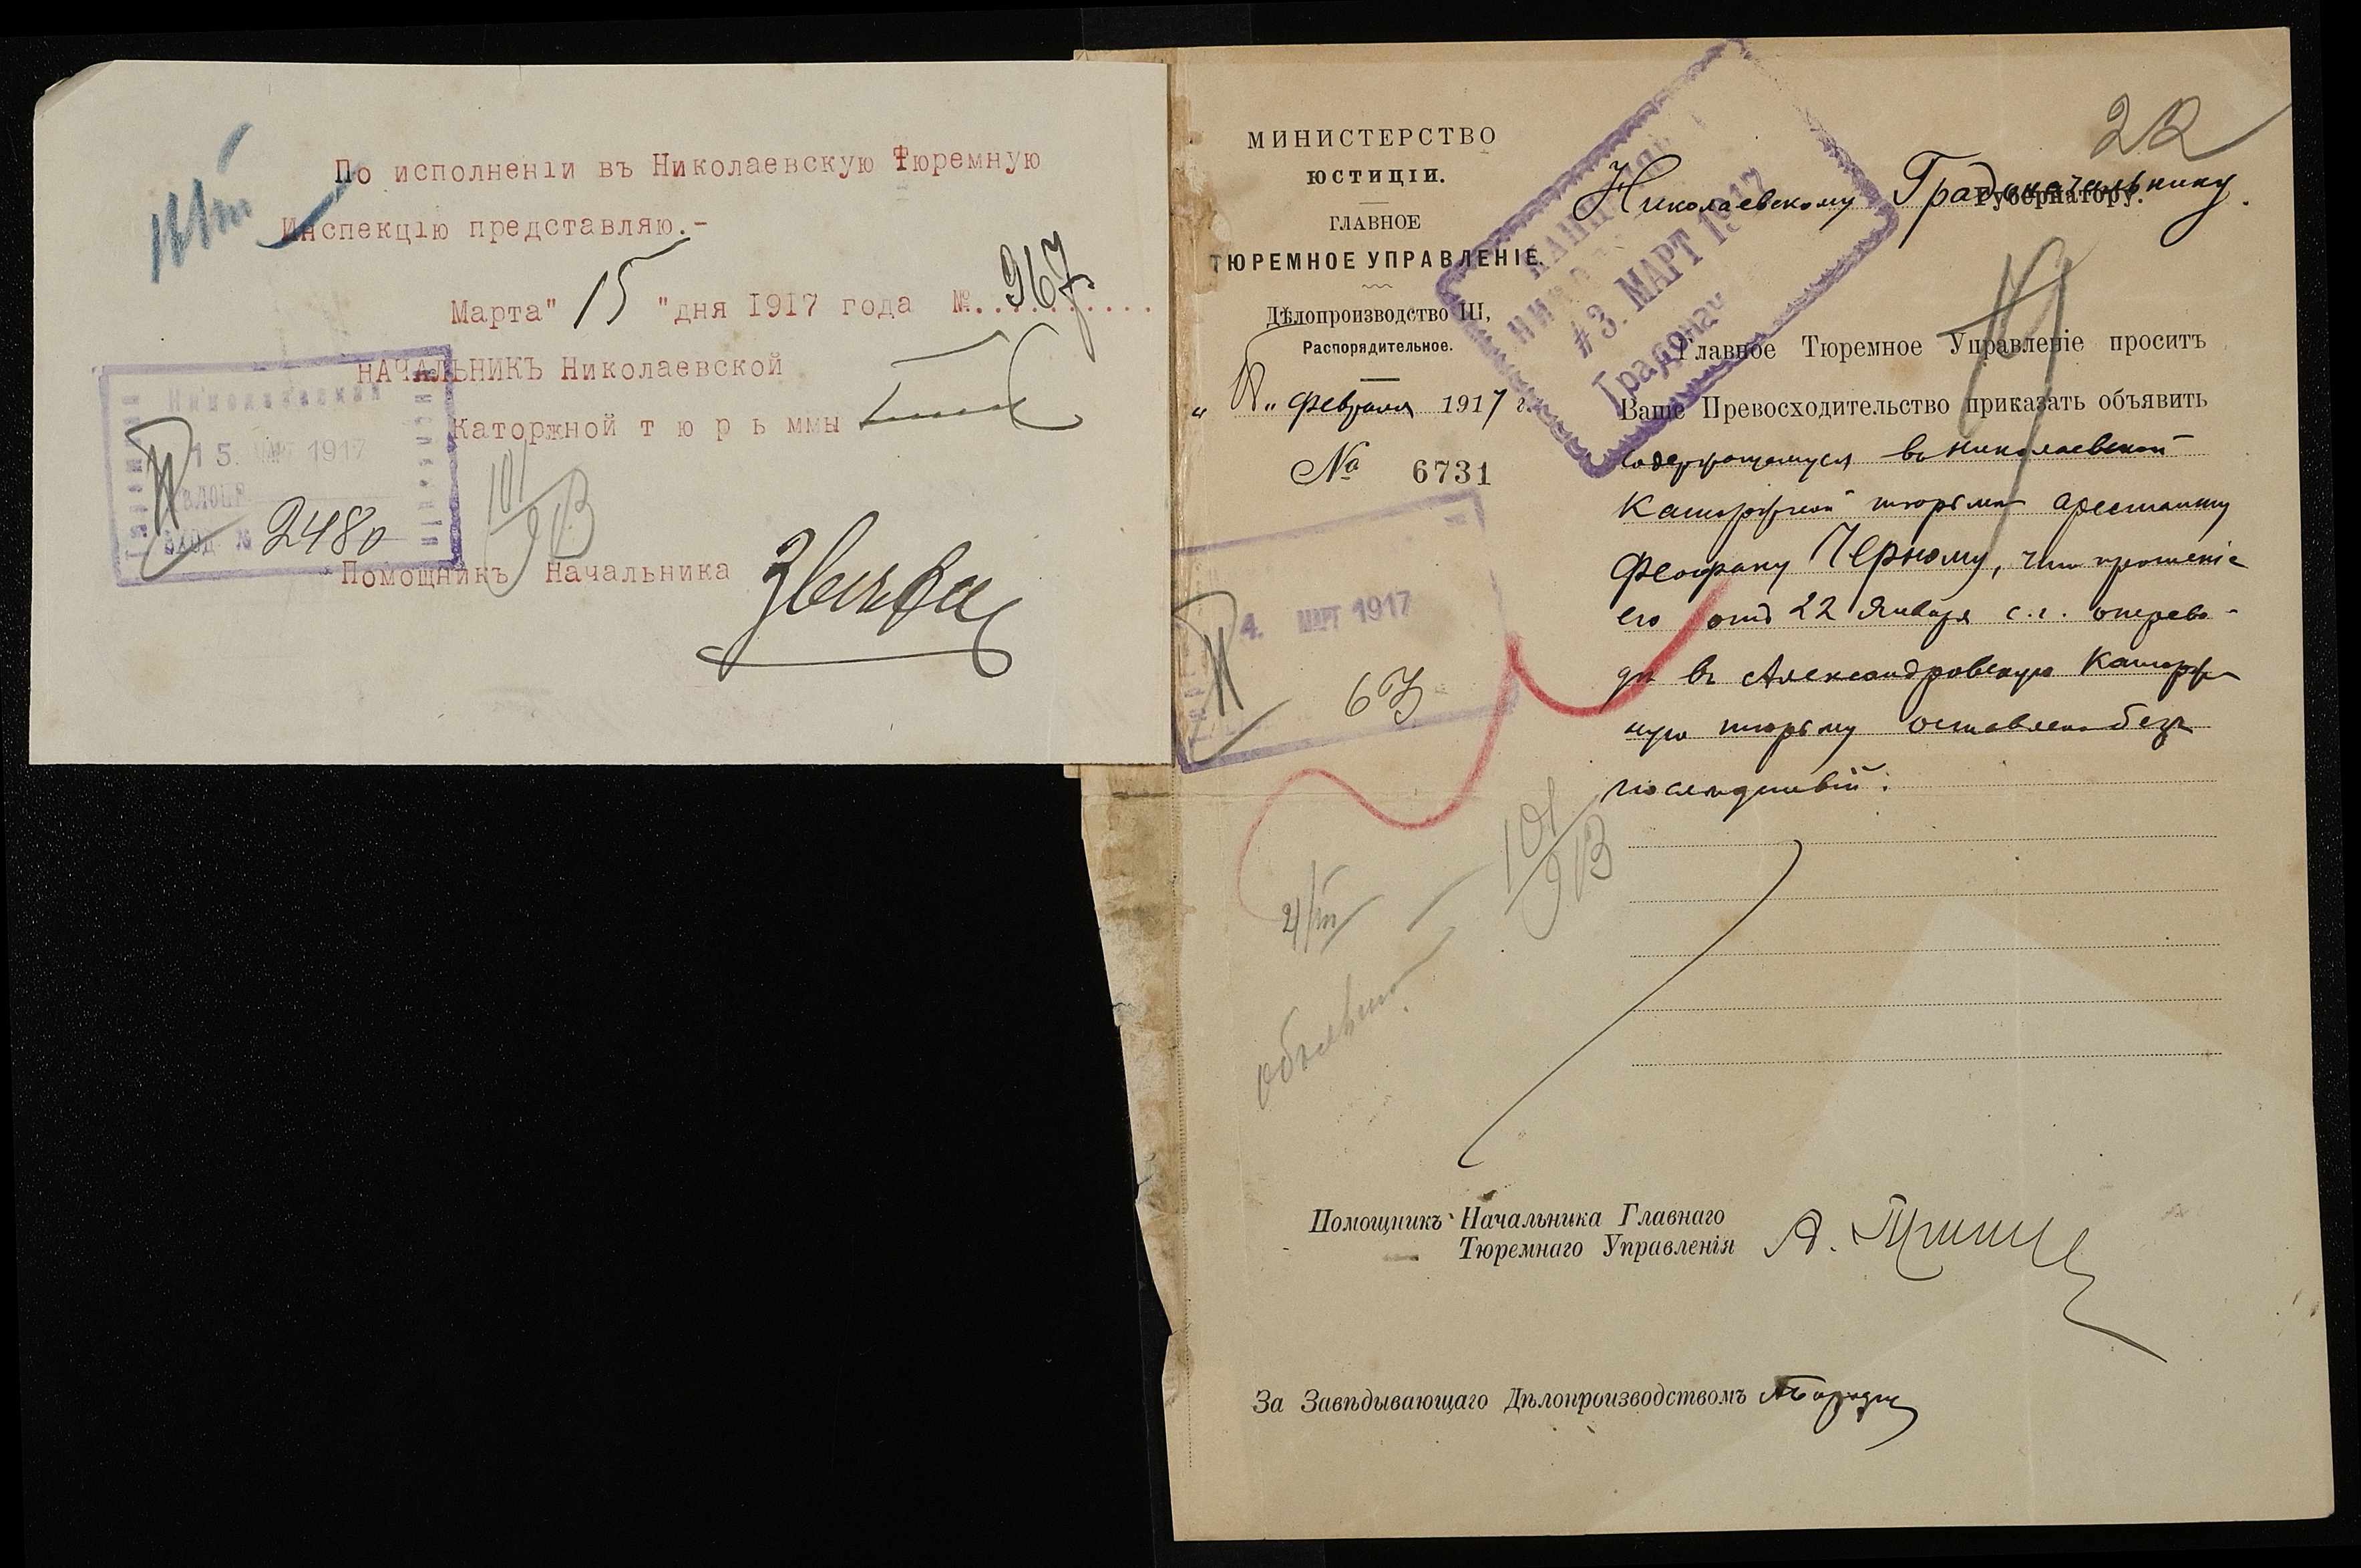 По исполненіи въ Николаевскую Тюремную
Инспекцію представляю.-
Марта" 15 "дня 1917 года №. 967
НАЧАЛЬНИКЪ Николаевской
Каторжной т ю р ь ммы
15. МАРТ 1917
ВХОД. № 2480
101
Помощникъ Начальника
22
МИНИСТЕРСТВО
ЮСТИЦІИ.
ГЛАВНОЕ
ТЮРЕМНОЕ УПРАВЛЕНІЕ.
Дѣлопроизводство III,
Распорядительное.
" Февраля 1917 г.
№ 6731
Николаевскому Градоначальнику.
Губернатору.
#3. МАРТ 1917
Градонач
Главное Тюремное Управленіе проситъ
Ваше Превосходительство приказать объявить
содержащемуся въ Николаевской
Каторжной тюрьмѣ арестанту
Феофану Черному, что прошеніе
его отъ 22 Января с.г. о перево-
дѣ въ Александровскую Каторж-
ную тюрьму оставлено безъ
послѣдствій.
4. МАРТ 1917
63
4/III
101
объявлено
Помощникъ Начальника Главнаго
Тюремнаго Управленія
За Завѣдывающаго Дѣлопроизводствомъ